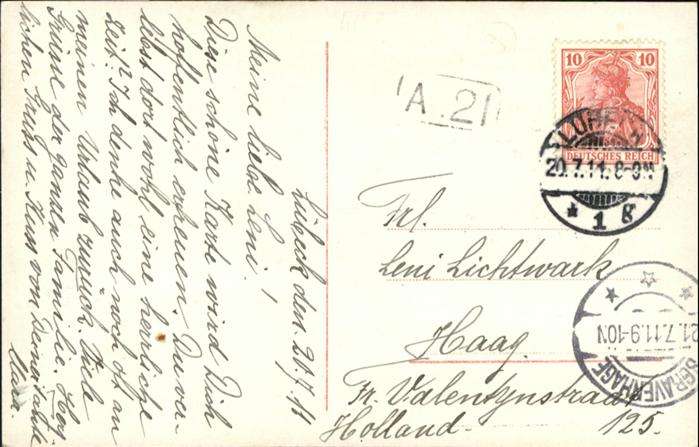 Lübeck den. 20.7.11
Meine liebe Leni!
Diese schöne Karte wird Dich
hoffentlich erfreuen. Du ver-
lebst dort wohl eine herrliche
Zeit? Ich denke auch noch oft an
meinen Urlaub zurück. Viele
Grüsse der ganzen Familie.
lichen Gruss u. Kuss von Deine
A. 21
10 10
DEUTSCHES REICH
LÜBECK
20.7.11. 8-9N
* 1 g
Frl.
Leni Lichtwark
Haag.
Fr. Valentynstraat
125.
Holland
21.7.11.9-10N
SGRAVENHAGE